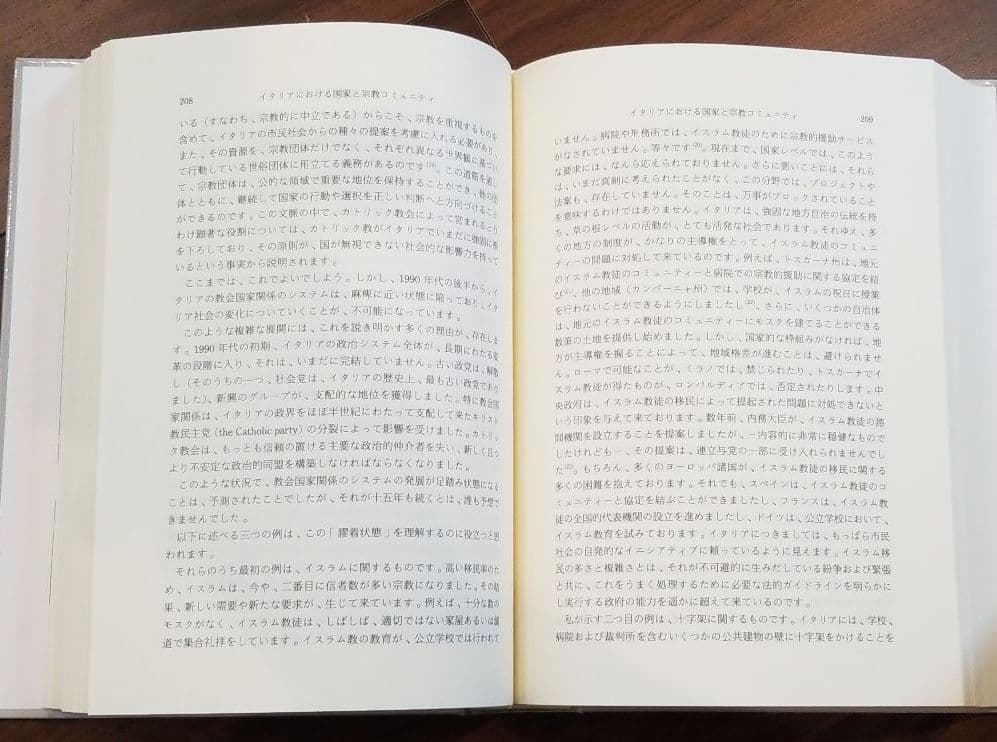 208
イタリアにおける国家と宗教コミュニティ
いる（すなわち、宗教的に中立である）からこそ、宗教を重視するものを
含めて、イタリアの市民社会からの種々の提案を考慮に入れる必要があり、
また、その資源を、宗教団体だけでなく、それぞれ異なる世界観に基づい
て行動している世俗団体に用立てる義務があるのです⁽¹⁹⁾。この道筋を通し
て、宗教団体は、公的な領域で重要な地位を保持することができ、他の団
体とともに、継続して国家の行動や選択を正しい判断へと方向づけること
ができるのです。この文脈の中で、カトリック教会によって営まれるとり
わけ顕著な役割については、カトリック教がイタリアでいまだに強固に根
を下ろしており、その原則が、国が無視できない社会的な影響力を持って
いるという事実から説明されます。
ここまでは、これでよいでしょう。しかし、1990年代の後半から、イ
タリアの教会国家関係のシステムは、麻痺に近い状態に陥っており、イタ
リア社会の変化についていくことが、不可能になっています。
このような複雑な展開には、これを説き明かす多くの理由が、存在しま
す。1990年代の初期、イタリアの政治システム全体が、長期にわたる変
革の段階に入り、それは、いまだに完結していません。古い政党は、解散
し（そのうちの一つ、社会党は、イタリアの歴史上、最も古い政党であり
ました）、新興のグループが、支配的な地位を獲得しました。特に教会国
家関係は、イタリアの政界をほぼ半世紀にわたって支配して来たキリスト
教民主党（the Catholic party）の分裂によって影響を受けました。カトリッ
ク教会は、もっとも信頼の置ける主要な政治的仲介者を失い、新しく且つ
より不安定な政治的同盟を構築しなければならなくなりました。
このような状況で、教会国家関係のシステムの発展が足踏み状態になる
ことは、予測されたことでしたが、それが十五年も続くとは、誰も予想で
きませんでした。
以下に述べる三つの例は、この「膠着状態」を理解するのに役立つと思
われます。
それらのうち最初の例は、イスラムに関するものです。高い移民率のた
め、イスラムは、今や、二番目に信者数が多い宗教になりました。その結
果、新しい需要や新たな要求が、生じて来ています。例えば、十分な数の
モスクがなく、イスラム教徒は、しばしば、適切ではない家屋あるいは舗
道で集合礼拝をしています。イスラム教の教育が、公立学校では行われて
イタリアにおける国家と宗教コミュニティ
209
いません。病院や刑務所では、イスラム教徒のために宗教的援助サービス
がなされていません。等々です⁽²⁰⁾。現在まで、国家レベルでは、このよう
な要求には、なんら応えられておりません。さらに悪いことには、それら
は、いまだ真剣に考えられたことがなく、この分野では、プロジェクトや
法案も、存在していません。そのことは、万事がブロックされていること
を意味するわけではありません。イタリアは、強固な地方自治の伝統を持
ち、草の根レベルの活動が、とても活発な社会であります。それゆえ、多
くの地方の制度が、かなりの主導権をとって、イスラム教徒のコミュニ
ティーの問題に対処して来ているのです。例えば、トスカーナ州は、地元
のイスラム教徒のコミュニティーと病院での宗教的援助に関する協定を結
び⁽²¹⁾、他の地域（カンパーニャ州）では、学校が、イスラムの祝日に授業
を行わないことができるようにしましたし⁽²²⁾、さらに、いくつかの自治体
は、地元のイスラム教徒のコミュニティーにモスクを建てることができる
数筆の土地を提供し始めました。しかし、国家的な枠組みがなければ、地
方が主導権を握ることによって、地域格差が進むことは、避けられませ
ん。ローマで可能なことが、ミラノでは、禁じられたり、トスカーナでイ
スラム教徒が得たものが、ロンバルディアでは、否定されたりします。中
央政府は、イスラムの移民によって提起された問題に対処できないと
いう印象を与えて来ております。数年前、内務大臣が、イスラム教徒の諮
問機関を設立することを提案しましたが、―内容的に非常に穏健なもので
したけれども―、その提案は、連立与党の一部に受け入れられませんでし
た⁽²³⁾。もちろん、多くのヨーロッパ諸国が、イスラム教徒の移民に関する
多くの困難を抱えております。それでも、スペインは、イスラム教徒のコ
ミュニティーと協定を結ぶことができましたし、フランスは、イスラム教
徒の全国的代表機関の設立を進めましたし、ドイツは、公立学校において、
イスラム教育を試みております。イタリアにつきましては、もっぱら市民
社会の自発的なイニシアティブに頼っているように見えます。イスラム移
民の多さと複雑さとは、それが不可避的に生みだしている紛争および緊張
と共に、これをうまく処理するために必要な法的ガイドラインを明らかに
し実行する政府の能力を遥かに超えて来ているのです。
私が示す二つ目の例は、十字架に関するものです。イタリアには、学校、
病院および裁判所を含むいくつかの公共建物の壁に十字架をかけることを